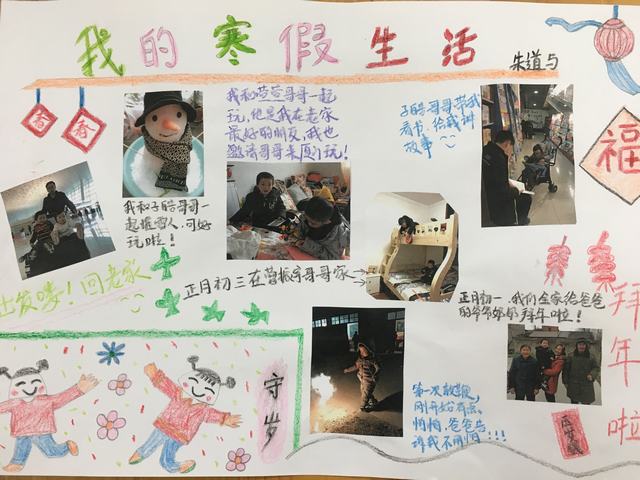 我的寒假生活
朱道与
春
春
福
我和萱萱哥哥一起
玩,他是我在老家
最好的朋友,我也
邀请哥哥来厦门玩!
子皓哥哥带我
看书,给我讲
故事
我和子皓哥哥一
起堆雪人,可好
玩啦!
出发喽!回老家
正月初三在曾振宇哥哥家
正月初一,我们全家给爸爸
的爷爷奶奶拜年啦!
拜年啦
守岁
第一次放鞭,
刚开始有点
怕怕,爸爸告
诉我不用怕!!!